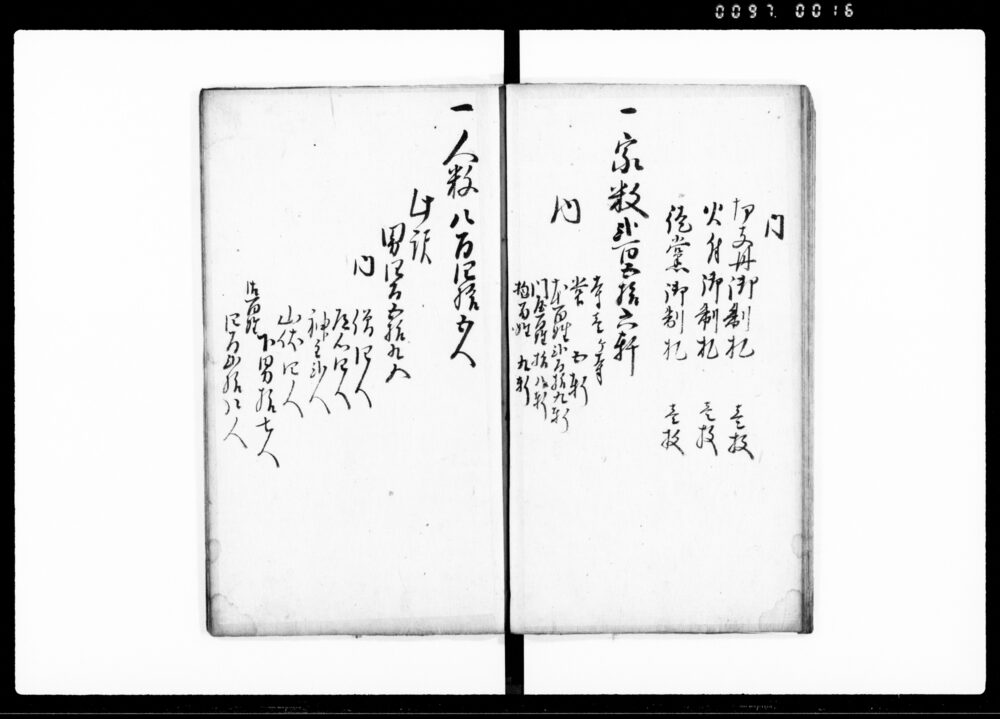 0097. 0016
内
切支丹御制札 壱枚
火付御制札 壱枚
徒黨御制札 壱枚
一家数弐百五拾六軒
内
寺壱ヶ寺
堂 五軒
本百姓弐百拾九軒
門屋 拾八軒
抱百姓 九軒
一人数八百四拾五人
此訳
男四百五拾九人
内
僧四人
医四人
神主弐人
山伏四人
下男拾七人
四百弐拾八人